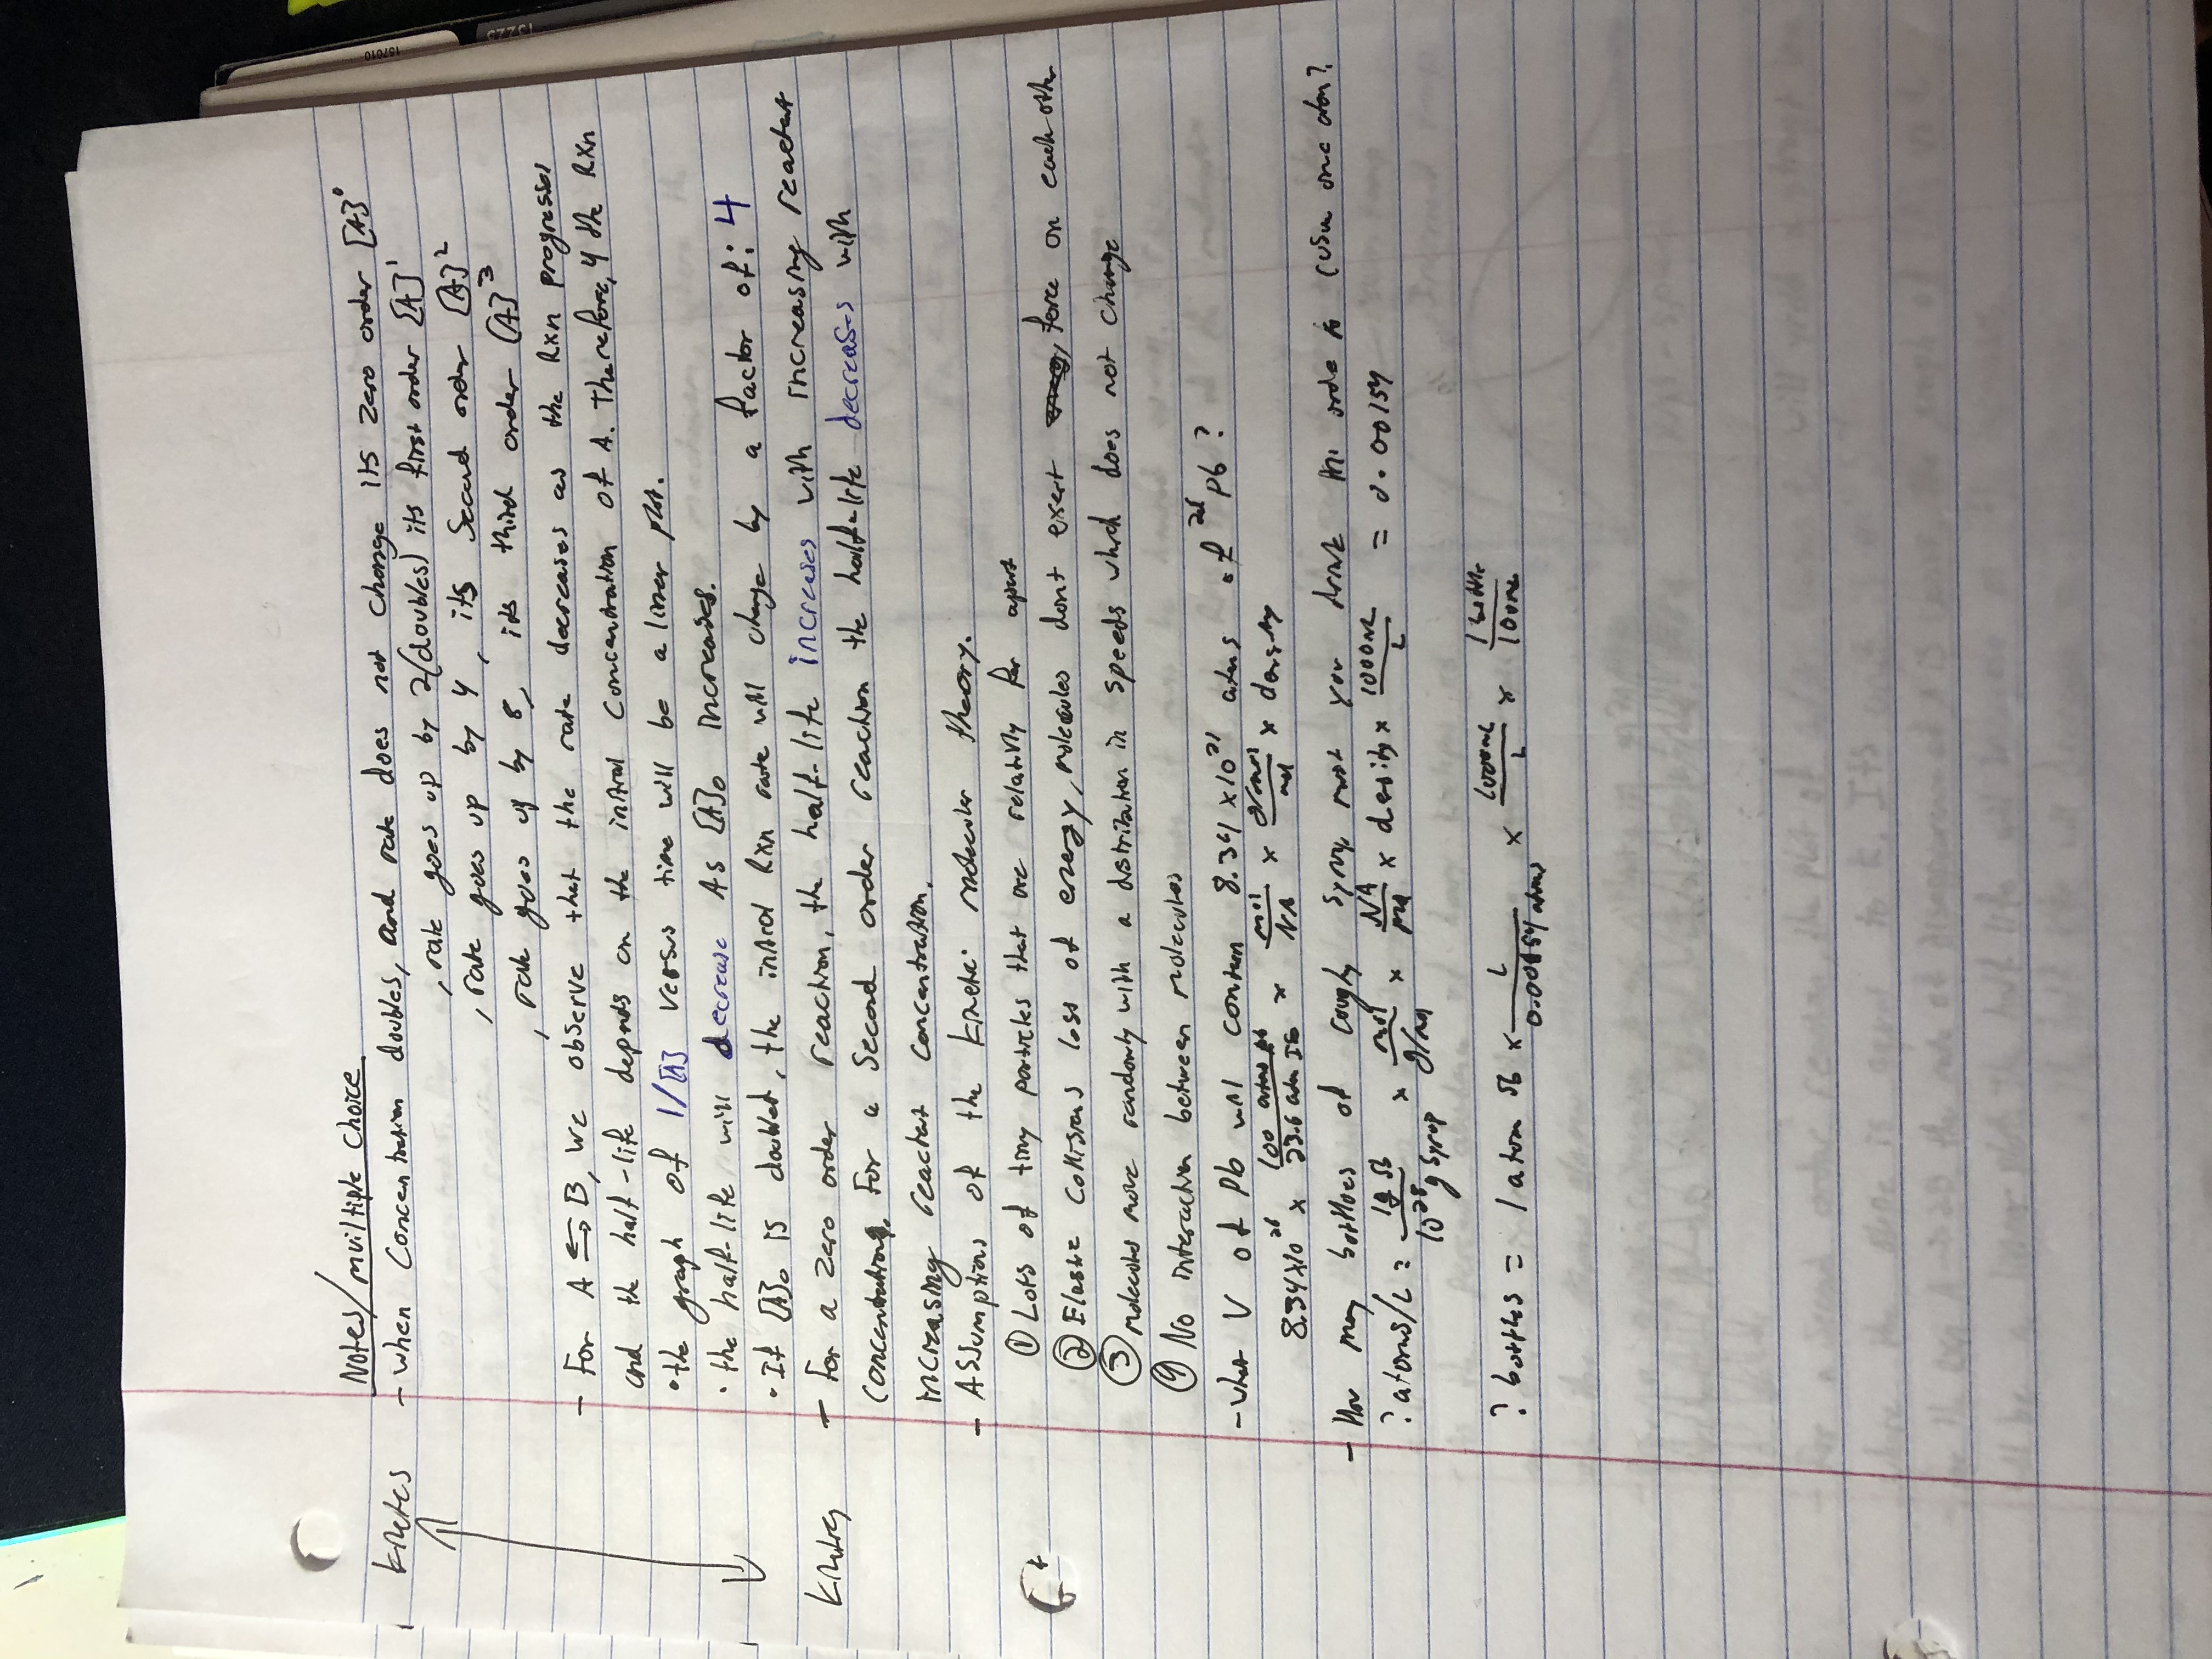 Notes/multiple choice
kinetics - when Concentration doubles, and rate does not change its zero order [A]⁰
, rate goes up by 2(doubles) its first order [A]¹
, rate goes up by 4, its Second order [A]²
, rate goes up by 8, its third order [A]³
- For A ⇌ B, we observe that the rate decreases as the Rxn progresses
and the half-life depends on the initial Concentration of A. Therefore, 4 the Rxn
• the graph of 1/[A] versus time will be a linear plot.
• the half-life will decrease As [A]₀ increases.
• If [A]₀ is doubled, the initial Rxn rate will change by a factor of: 4
kinetics - For a zero order reaction, the half-life increases with increasing reactant
concentration. For a Second order reaction the half-life decreases with
increasing reactant concentration.
- Assumptions of the kinetic molecular theory.
① Lots of tiny particles that are relativly far apart
② Elastic collisions loss of energy, molecules dont exert force on each other
③ molecules move randomly with a distribution in speeds which does not change
④ No interaction between molecules
- What V of Pb will contain 8.34 x 10²¹ atoms of Pb?
x 100 atoms Pb / 23.6 x mol / NA x grams / mol x density
- How many bottles of cough syrup must you drink in order to consume one atom?
? atoms/L = x mol / g x NA / mol x density x 1000mL / L = 0.00154
10²⁸ g syrup
? bottles = 1 atom x L / 0.00154 atoms x 1000mL / L x 1 bottle / 100mL
157010